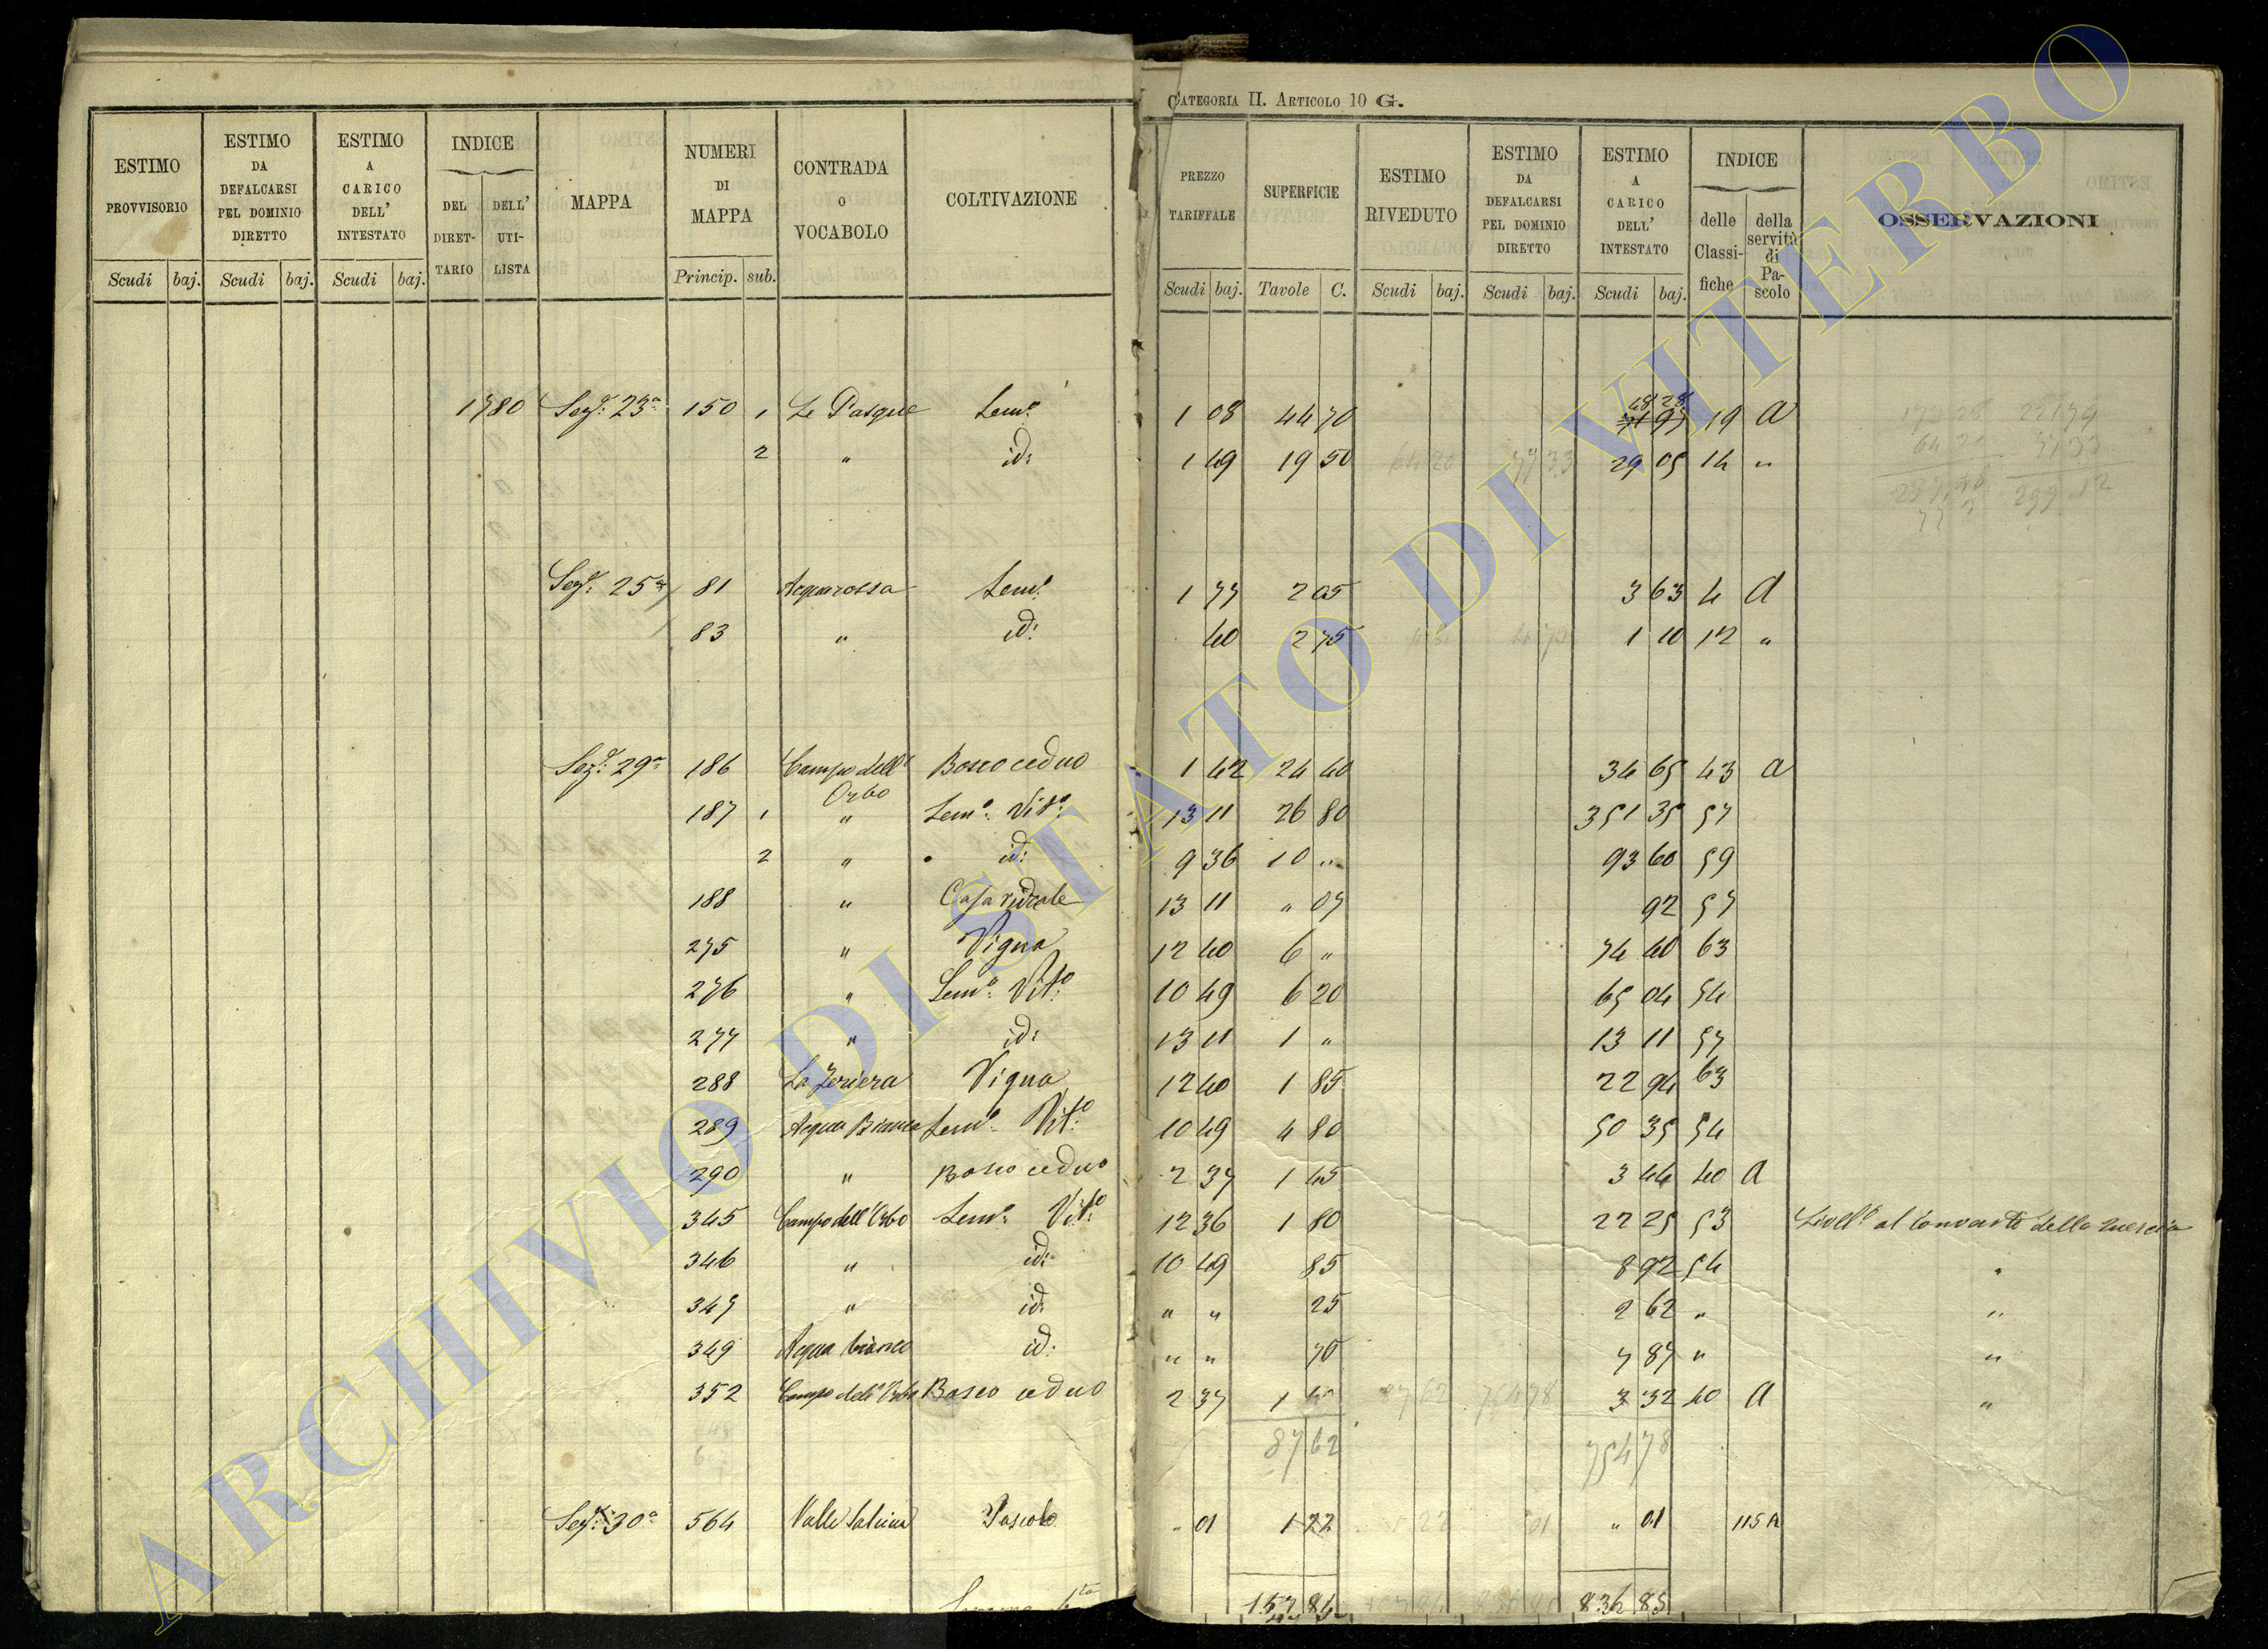 CATEGORIA II. ARTICOLO 10 G.
ESTIMO PROVVISORIO Scudi baj.
ESTIMO DA DEFALCARSI PEL DOMINIO DIRETTO Scudi baj.
ESTIMO A CARICO DELL' INTESTATO Scudi baj.
INDICE DEL DIRETTARIO DELL' UTILISTA
MAPPA
NUMERI DI MAPPA Princip. sub.
CONTRADA O VOCABOLO
COLTIVAZIONE
PREZZO TARIFFALE Scudi baj.
SUPERFICIE Tavole C.
ESTIMO RIVEDUTO Scudi baj.
ESTIMO DA DEFALCARSI PEL DOMINIO DIRETTO Scudi baj.
ESTIMO A CARICO DELL' INTESTATO Scudi baj.
INDICE delle Classifiche della servitù di Pascolo
OSSERVAZIONI
1780 Sez.e 23a 150 1 Le Pasque Sem.o 1 08 44 70 48 28 19 a
2 " id: 1 49 19 50 29 05 14 "
Sez.e 25a 81 Acquarossa Sem.o 1 77 2 05 3 63 4 a
83 " id: 40 2 75 1 10 12 "
Sez.e 29a 186 Campo dell' Orbo Bosco ceduo 1 42 24 40 34 65 43 a
187 1 " Sem.o Vit.o 13 11 26 80 351 35 57
2 " id: 9 36 10 " 93 60 59
188 " Casa rurale 13 11 " 07 92 57
275 " Vigna 12 40 6 " 74 40 63
276 " Sem.o Vit.o 10 49 6 20 65 04 54
277 " id: 13 11 1 " 13 11 57
288 Vigna 12 40 1 85 22 94 63
289 Acqua Bianca Sem.o Vit.o 10 49 4 80 50 35 54
290 " Bosco ceduo 2 37 1 45 3 44 40 a
345 Campo dell'Orbo Sem.o Vit.o 12 36 1 80 22 25 53 Livell.o al Convento della Quercia
346 " id: 10 49 85 8 92 54 "
347 " id: " " 25 2 62 " "
349 Acqua bianca id: " " 75 7 87 " "
352 Campo dell'Orbo Bosco ceduo 2 37 1 40 3 32 40 a "
87 62 754 78
Sez.e 30a 564 Pascolo " 01 1 22 " 01 115 a
157 84 836 85
ARCHIVIO DI STATO DI VITERBO